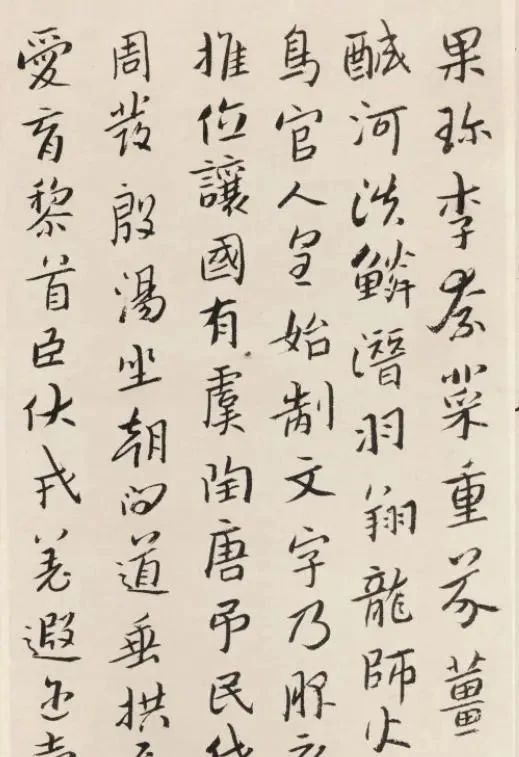 果珍李柰菜重芥薑
醎河淡鱗潛羽翔龍師火
鳥官人皇始制文字乃服衣
推位讓國有虞陶唐弔民伐
周發殷湯坐朝問道垂拱平
愛育黎首臣伏戎羌遐迩壹